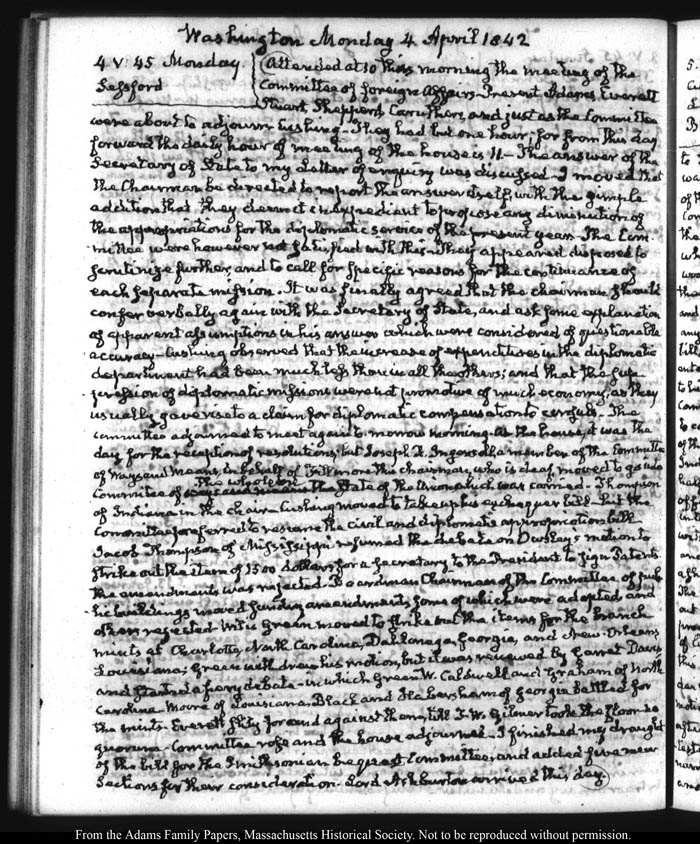 Washington Monday 4 April 1842
4. V: 45 Monday
Sessford
Attended at 10 this morning the meeting of the
Committee of foreign Affairs. Present Adams, Everett
Stuart, Shepperd, Caruthers, and just as the Committee
were about to adjourn Cushing. They had but one hour, for from this day
forward the daily hour of meeting of the house is 11 — The answer of the
Secretary of State to my Letter of enquiry was discussed. I moved that
the Chairman be directed to report the answer itself, with the simple
addition that they deem it inexpedient to propose any diminution of
the appropriations for the diplomatic service of the present year. The Com-
mittee were however not satisfied with this. They appeared disposed to
scrutinize further, and to call for specific reasons for the continuance of
each separate mission. It was finally agreed that the chairman should
confer verbally again with the Secretary of State, and ask some explanation
of apparent assumptions in his answer which were considered of questionable
accuracy — Cushing observed that the increase of expenditures in the diplomatic
department had been much less than in all the others; and that the sup-
pression of diplomatic missions were not promotive of much economy, as they
usually gave rise to a claim for diplomatic compensation to consuls. The
committee adjourned to meet again to-morrow morning. At the house, it was the
day for the reception of resolutions, but Joseph R. Ingersoll a member of the Committee
of Ways and Means, in behalf of Fillmore the chairman, who is deaf, moved to go into
the whole on
Committee of ways and means the State of the Union which was carried. Thompson
of Indiana in the chair. Cushing moved to take up his exchequer bill. but the
Committee preferred to resume the civil and diplomatic appropriation bill
Jacob Thompson of Mississippi resumed the debate on Owsley's motion to
strike out the item of 1500 dollars for a Secretary to the President to sign Patents.
the amendments was rejected. Boardman Chairman of the Committee of pub-
lic buildings moved sundry amendments, some of which were adopted and
others rejected. Willis Green moved to strike out the items for the branch
mints at Charlotte, North Carolina, Dahlonega Georgia, and New-Orleans
Louisiana; Green withdrew his motion, but it was renewed by Garret Davis
and started a fiery debate — in which Green W. Caldwell and Graham of North
Carolina Moore of Louisiana Black and Habersham of Georgia battled for
the mints. Everett for and against them, till T. W. Gilmer took the floor no
quorum. Committee rose and the house adjourned. I finished my draught
of the bill for the Smithsonian bequest Committee, and added five new
Sections for their consideration. Lord Ashburton arrived this day
From the Adams Family Papers, Massachusetts Historical Society. Not to be reproduced without permission.